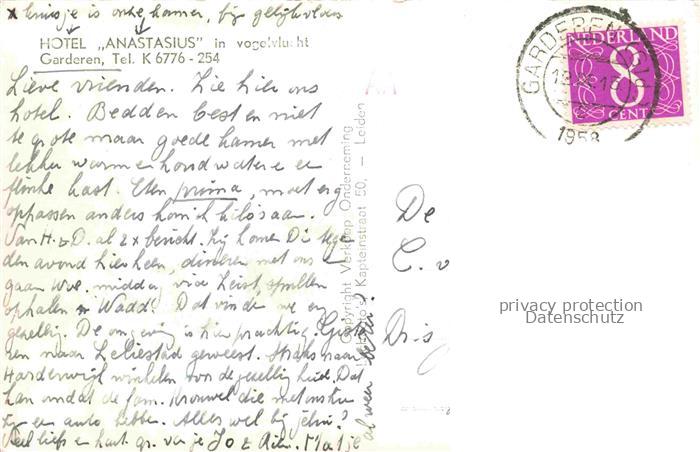 x kruisje is onze kamer, bij gelijkvloers
HOTEL „ANASTASIUS" in vogelvlucht
Garderen, Tel. K 6776 - 254
Lieve vrienden. Zie hier ons
hotel. Bedden best en niet
te grote maar goede kamer met
lekker warm en koud water en
flinke kast. Eten prima, moet erg
oppassen anders kom ik kilo's aan.
Van H. & D. al 2 x bericht. Zij komen Di tege
den avond hierheen, dineren met ons en
gaan Woe. middag via Zeist, spullen
ophalen Wadd. Dat vinden we erg
gezellig. De omgeving is hier prachtig. Gister
zijn naar Leliestad geweest. Straks naar
Harderwijk winkelen voor de gezellig heid. Dat
kan omdat de fam. Krouwel die met ons
zijn een auto hebben. Alles wel bij jelui?
Veel liefs en hart. gr. van je Jo &
al weer beter?
Copyright Verkoop Onderneming
Kapteinstraat 50, — Leiden
De
C. v
Dris
GARDEREN
1958
NEDERLAND
8
CENT
privacy protection
Datenschutz